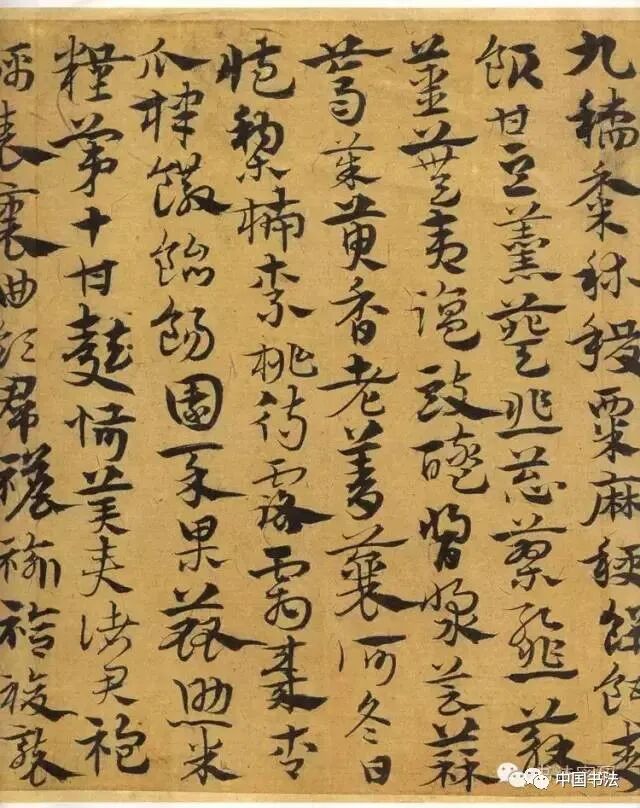 九稻黍秫稷粟麻稉餅餌麥
飯甘豆羹葵韭葱蓼韰蘇
薑蕪夷塩豉醯醬漿芸蒜
茱萸香老菁蘘河冬日
梨柿柰桃待露霜棗杏
瓜棣饊飴餳園菜果蓏助米
糧第十甘麩恬美奏諸君袍
襦表裏曲領帬襜褕袷複
中国书法